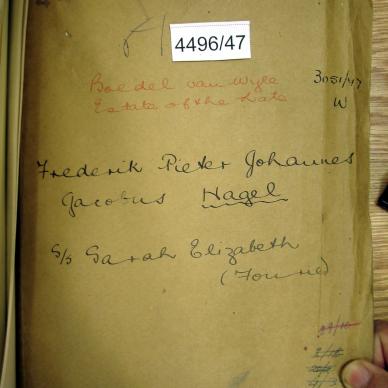 4496/47
Boedel van Wyle
Estate of the Late
3051/47
W
Frederik Pieter Johannes
Jacobus Nagel
S/S Sarah Elizabeth
(Fourie)